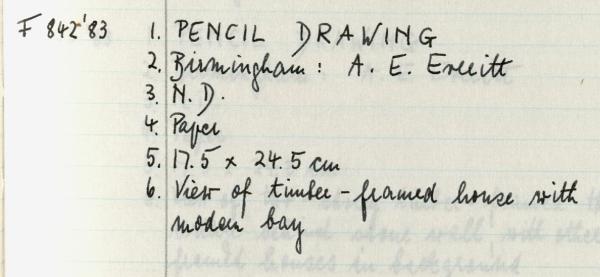 F 842'83 1. PENCIL DRAWING
2. Birmingham: A. E. Everitt
3. N.D.
4. Paper
5. 17.5 x 24.5 cm
6. View of timber-framed house with
modern bay